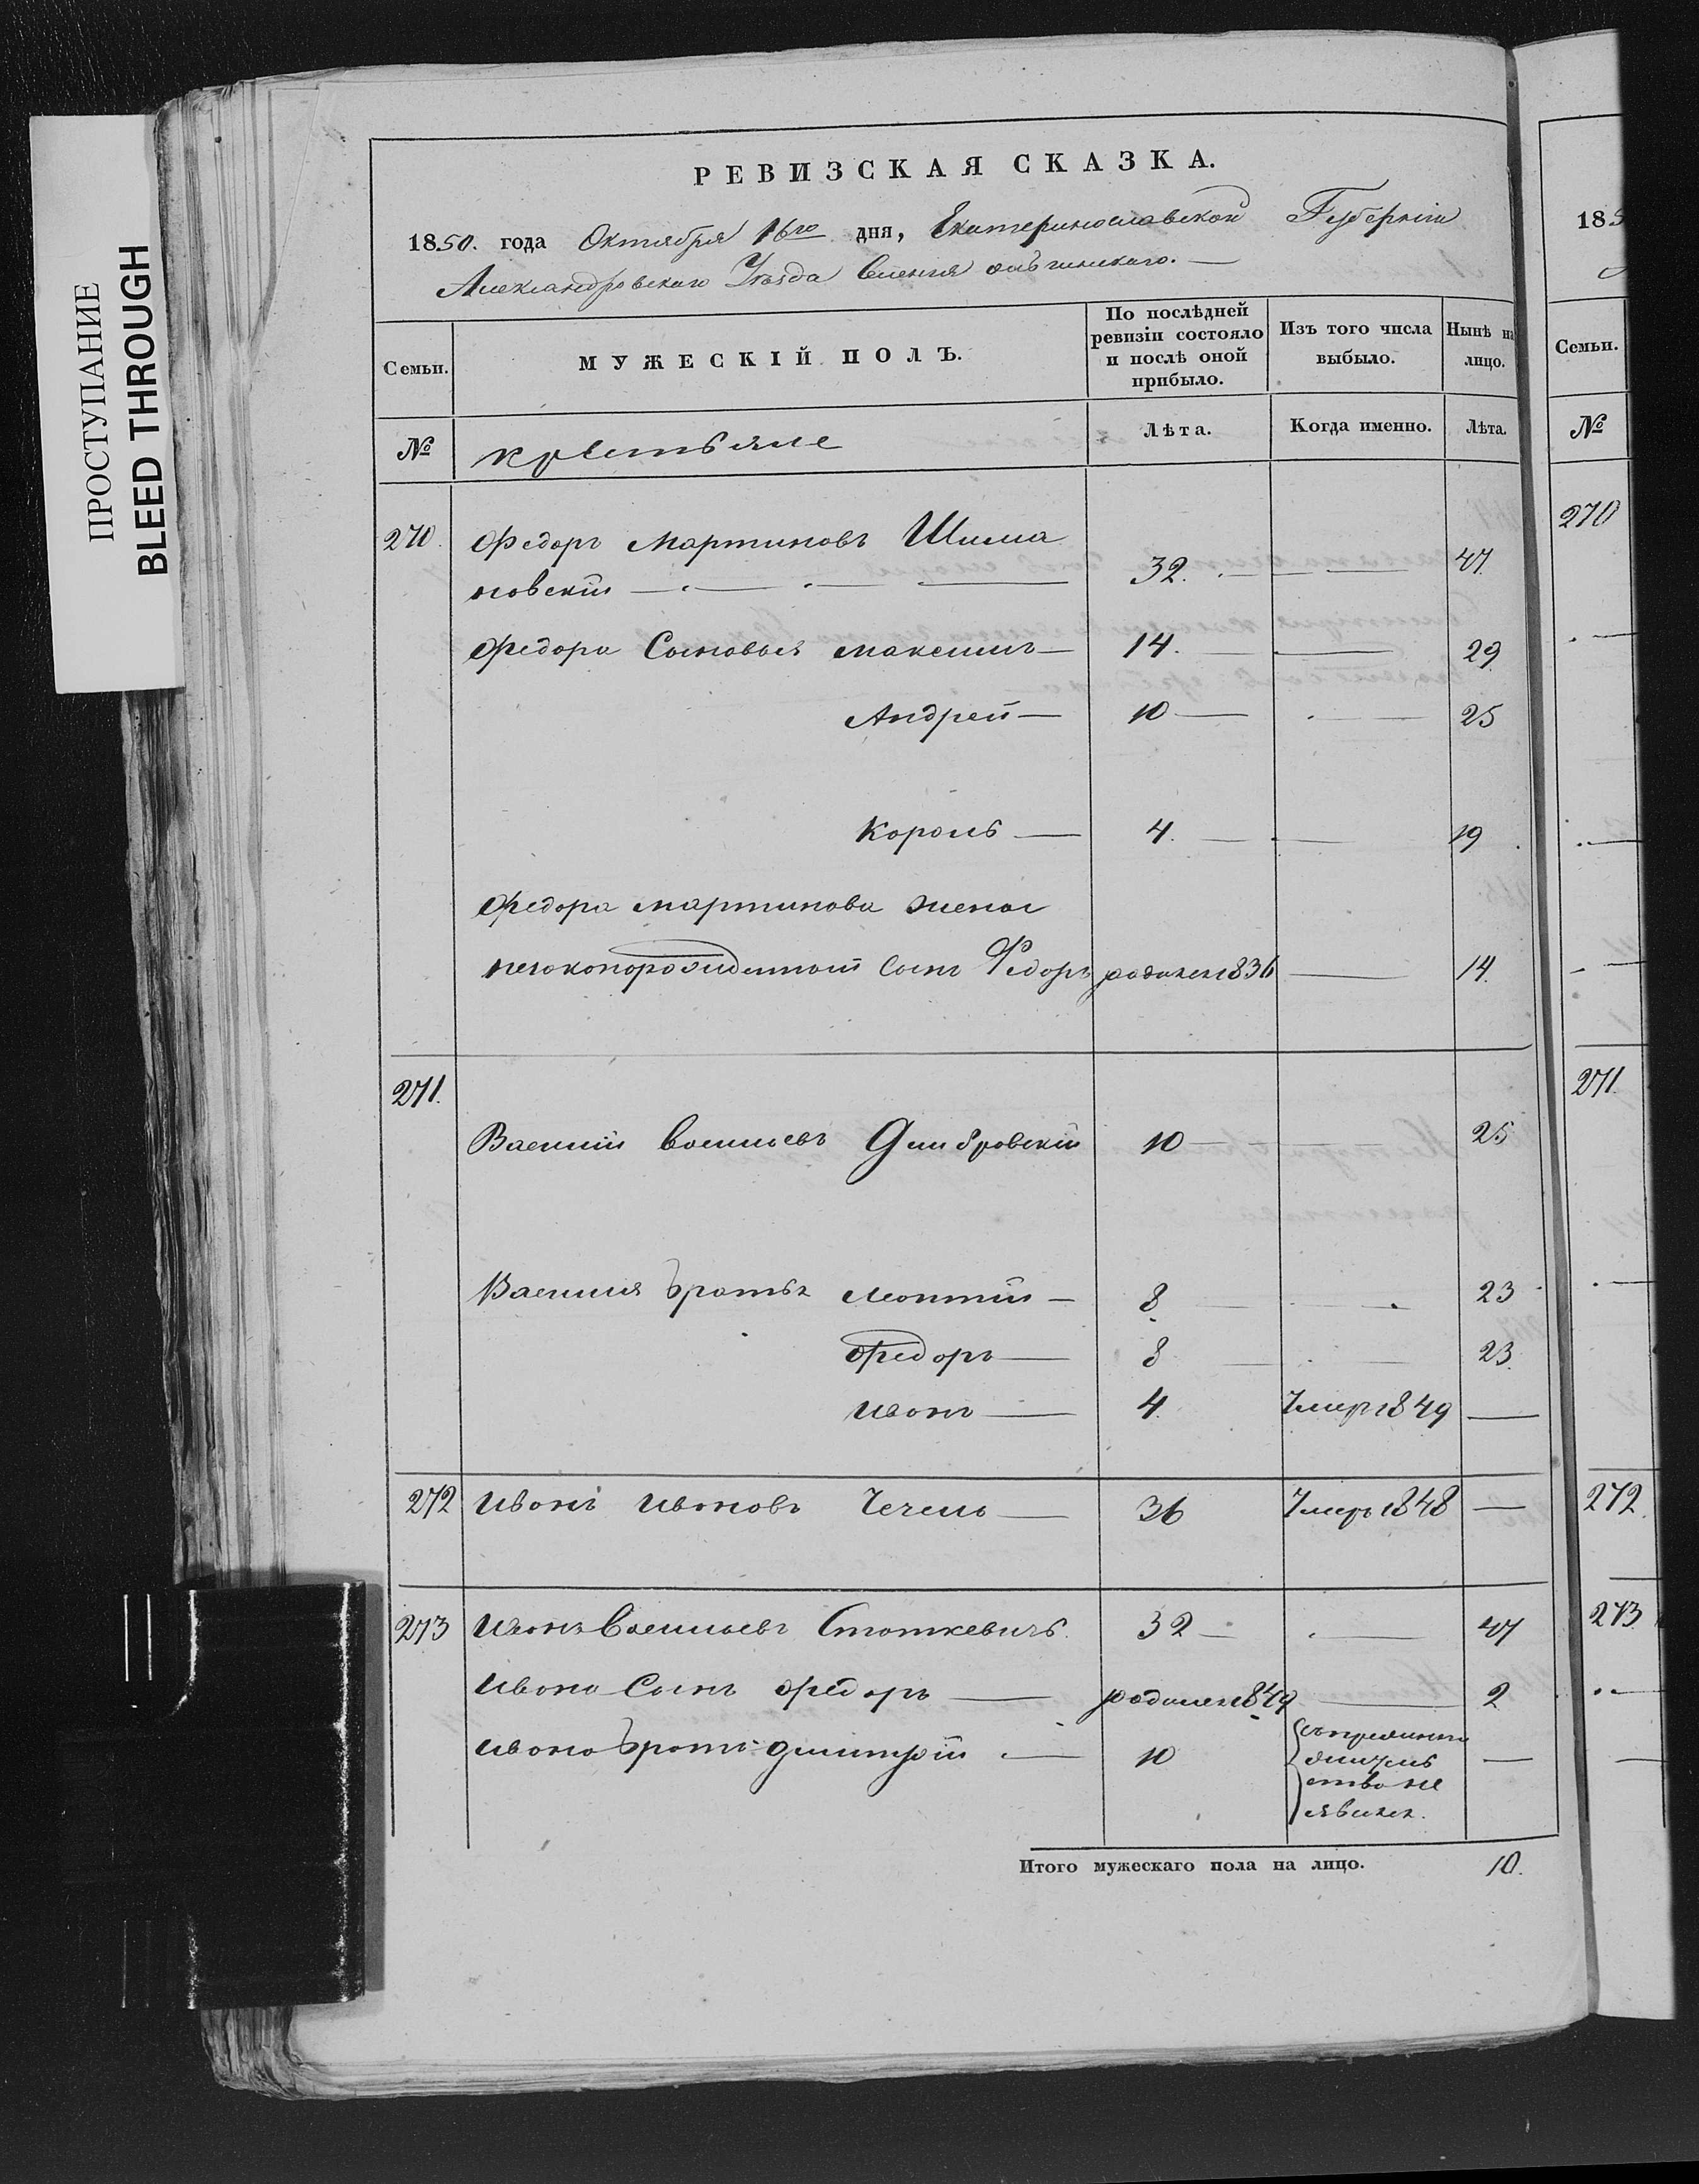 ПРОСТУПАНИЕ
BLEED THROUGH
РЕВИЗСКАЯ СКАЗКА.
1850. года Октября 16го дня, Екатеринославской Губернiи
Александровскаго Уѣзда Селенiя
Семьи. МУЖЕСКIЙ ПОЛЪ. По послѣдней ревизiи состояло и послѣ оной прибыло. Изъ того числа выбыло. Нынѣ на лицо.
№ крестьяне Лѣта. Когда именно. Лѣта.
270. Федоръ Мартиновъ Шима
новскiй 32. 47.
Федора Сыновья Максимъ 14. 29
Андрей 10 25
Король 4. 19
Федора Мартинова жены
незоконорожденный сынъ Федоръ родился 1836 14.
271.
Василiй Васильевъ Домбровскiй 10 25
Василия братья Леонтiй 8 23
Федоръ 8 23.
Иванъ 4. Умеръ 1849
272 Иванъ Ивановъ Чечель 36 Умеръ 1848
273 Иванъ Васильевъ Статкевичъ. 32 47
Ивана Сынъ Федоръ родился 1849 2
Ивана братъ Дмитрiй 10
ство не
явился.
Итого мужескаго пола на лицо. 10.
185
Семьи.
№
270
271.
272.
273.